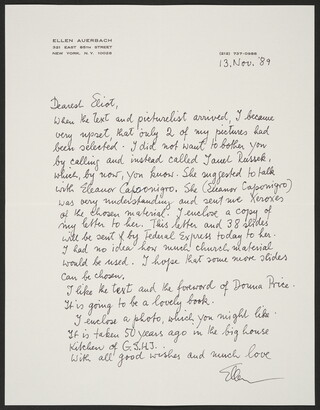 ELLEN AUERBACH
321 EAST 85TH STREET
NEW YORK, N.Y. 10028
(212) 737-0966
13. Nov. '89
Dearest Eliot,
When the text and picturelist arrived, I became
very upset, that only 2 of my pictures had
been selected. I did not want to bother you
by calling and instead called Janet Russek,
which, by now, you know. She suggested to talk
with Eleanor Caponigro. She (Eleanor Caponigro)
was very understanding and sent me Xeroxes
of the chosen material. I enclose a copy of
my letter to her. This letter and 38 slides
will be sent by Federal Express today to her.
I had no idea how much church material
would be used. I hope that some more slides
can be chosen.
I like the text and the foreword of Donna Price.
It is going to be a lovely book.
I enclose a photo, which you might like.
It is taken 50 years ago in the big house
Kitchen of G.S.H.I.
With all good wishes and much love
Ellen